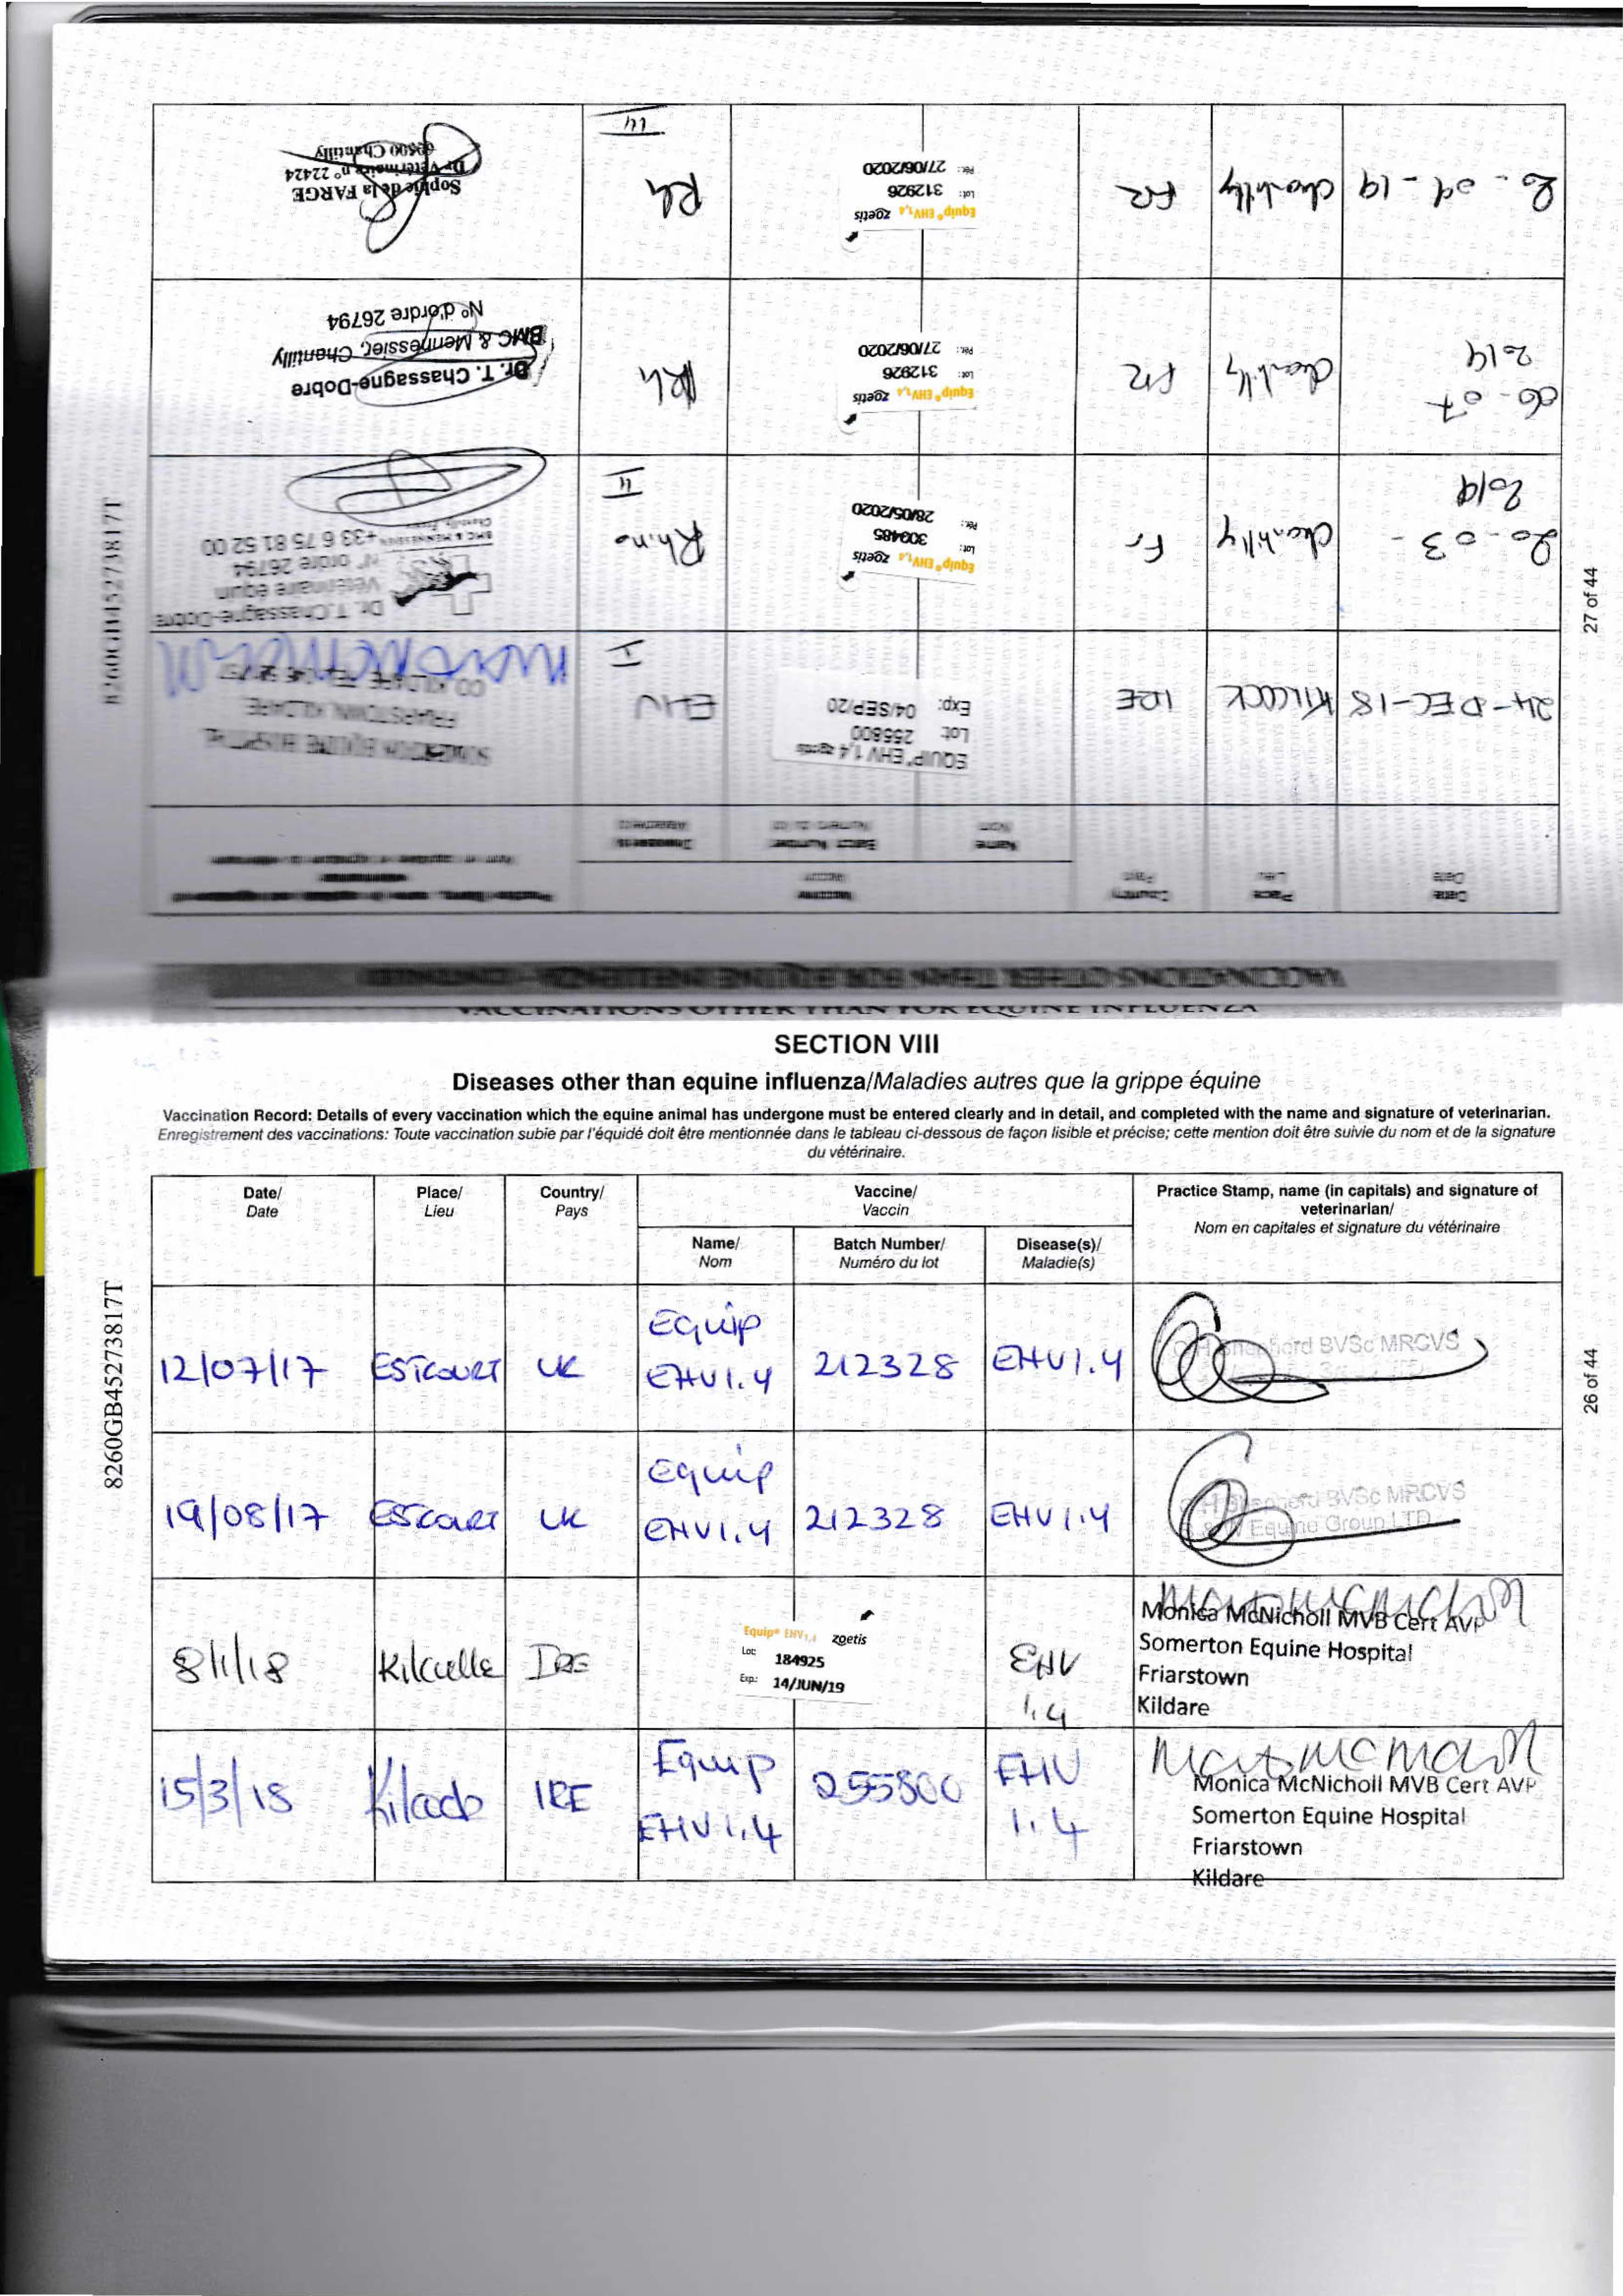 SECTION VIII
Diseases other than equine influenza/Maladies autres que la grippe équine
Vaccination Record: Details of every vaccination which the equine animal has undergone must be entered clearly and in detail, and completed with the name and signature of veterinarian.
Enregistrement des vaccinations: Toute vaccination subie par l'équidé doit être mentionnée dans le tableau ci-dessous de façon lisible et précise; cette mention doit être suivie du nom et de la signature
du vétérinaire.
Date/ Place/ Country/ Vaccine/ Practice Stamp, name (in capitals) and signature of
Date Lieu Pays Vaccin veterinarian/
Nom en capitales et signature du vétérinaire
Name/ Batch Number/ Disease(s)/
Nom Numéro du lot Maladie(s)
Equip
12/07/17 ESTCOURT UK EHV1.4 212328 EHV1.4
BVSc MRCVS
Equip
19/08/17 ESTCOURT UK EHV1.4 212328 EHV1.4
BVSc MRCVS
Equine Group LTD
8/1/18 Kilculle IRE
Equip® EHV1,4 zoetis
Lot: 184925
Exp.: 14/JUN/19
EHV
1.4
Monica McNicholl MVB Cert AVP
Somerton Equine Hospital
Friarstown
Kildare
15/3/18 IRE
Equip
EHV 1,4
255800
EHV
1.4
Monica McNicholl MVB Cert AVP
Somerton Equine Hospital
Friarstown
Kildare
8260GB45273817T
26 of 44
VACCINATIONS OTHER THAN FOR EQUINE INFLUENZA
Date Place Country Vaccine
Date Lieu Pays Vaccin
Name Batch Number
Nom
24-DEC-18 KILCOCK IRE
EQUIP® EHV 1,4 zoetis
Lot: 255800
Exp: 04/SEP/20
EHV
I
SOMERTON EQUINE HOSPITAL
FRIARSTOWN, KILDARE
CO KILDARE
20-03-
2019
Chantilly Fr
Equip® EHV1,4 zoetis
Lot: 309485
Pér.: 28/05/2020
Rhino
II
Dr. T. Chassagne-Dobre
Vétérinaire équin
N° ordre 26794
+33 6 75 81 52 00
BMC & MENNESSIER
06-07
2019
Chantilly FR
Equip® EHV1,4 zoetis
Lot: 312926
Pér.: 27/06/2020
Rh
Dr. T. Chassagne-Dobre
BMC & Mennessier, Chantilly
N° d'ordre 26794
20-09-19 Chantilly FR
Equip® EHV1,4 zoetis
Lot: 312926
Pér.: 27/06/2020
Rh
III
Sophie de la FARGE
Dr Vétérinaire n° 22424
60500 Chantilly
8260GB45273817T
27 of 44